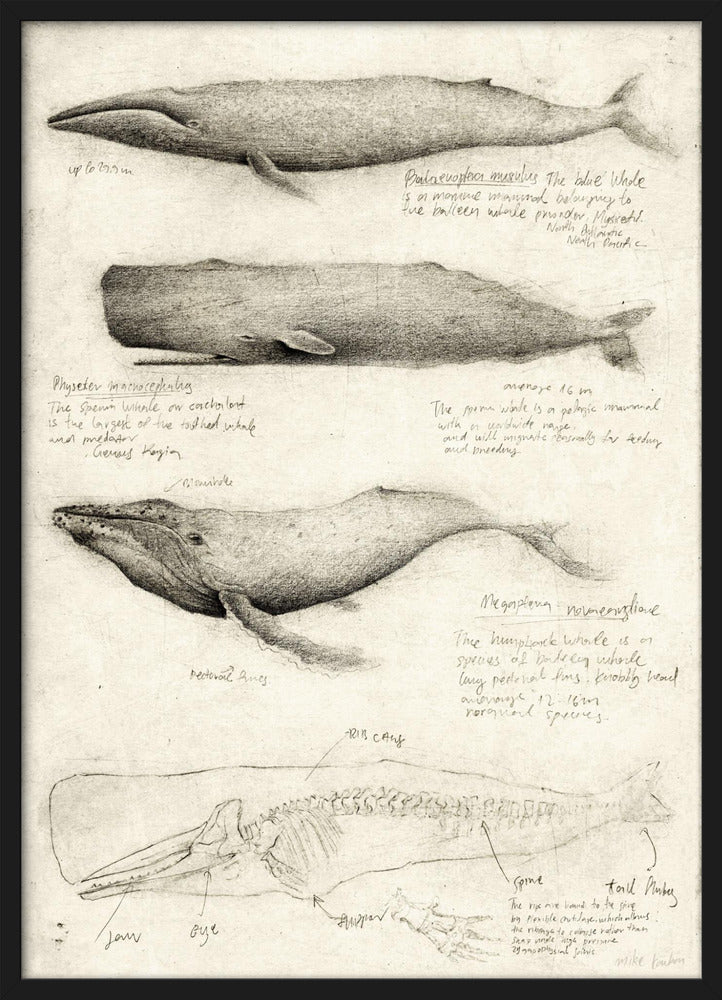 up to 29.9m
Balaenoptera musculus The blue Whale
is a marine mammal belonging to
the baleen whale
North Atlantic
North Pacific
Physeter macrocephalus
The sperm whale or cachalot
is the largest of the toothed whale
and predator
Genus Kogia
average 16 m
The sperm whale is a pelagic mammal
with a worldwide range,
and will migrate seasonally for feeding
and breeding.
Blowhole
Megaptera novaeangliae
The humpback whale is a
species of baleen whale
long pectoral fins. Knobbly head
average 12-16m
rorqual species.
Pectoral fins
RIB CAGE
Spine
The ribs are bound to the spine
by flexible cartilage, which allows
the ribcage to collapse rather than
snap under high pressure
Jaw
eye
flipper
mike